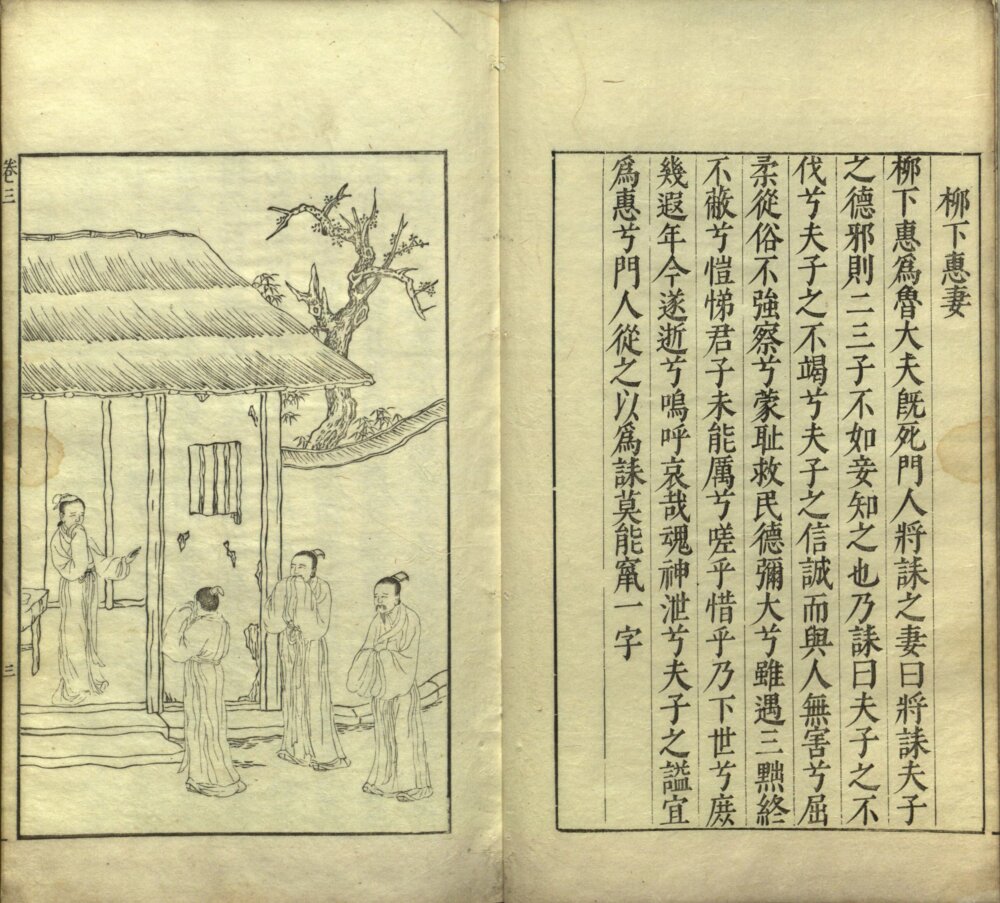 柳下惠妻
柳下惠爲魯大夫既死門人將誄之妻曰將誄夫子
之德邪則二三子不如妾知之也乃誄曰夫子之不
伐兮夫子之不竭兮夫子之信誠而與人無害兮屈
柔從俗不強察兮蒙恥救民德彌大兮雖遇三黜終
不蔽兮愷悌君子未能厲兮嗟乎惜乎乃下世兮庻
幾遐年今遂逝兮嗚呼哀哉魂神泄兮夫子之謚宜
爲惠兮門人從之以爲誄莫能竄一字
卷三
三